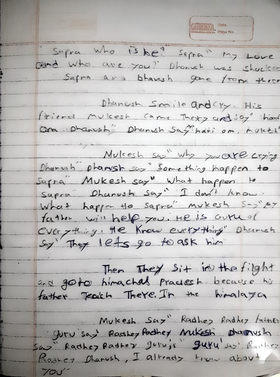 Sapra Who is he" Sapra" My Love
and Who are you" Dhanush was shocked
Sapra and bhavsh gone from there
Dhanush Smile and cry. His
friend Mukesh came There and say" hari
om Dhanush" Dhanush Say" hari om. Mukesh
Mukesh say" Why you are crying
Dhanush" Dhanush say" Something happen to
Sapra" Mukesh say" What happen to
Sapra" Dhanush say" I don't know.
What happen to Sapra" Mukesh Say" My
father will help you. He is Guru of
Everything. He Know everything" Dhanush
Say" They lets go to ask him"
Then They Sit in the flight
and goto himachal Pradesh because his
father Teach There. In the himalaya
Mukesh Say" Radhey Radhey father
"guru" say" Radhey Radhey Mukesh Dhanush
Say" Radhey Radhey guruji" guru" say" Radhey
Radhey Dhanush, I already know about
you"